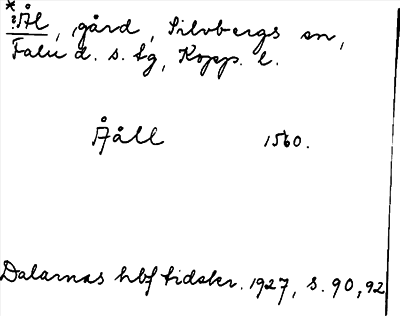 *:Ål, gård, Silvbergs sn,
Falu d. s. tg, Kopp. l.
Ååll 1560.
Dalarnas hbf tidskr. 1927, s. 90, 92